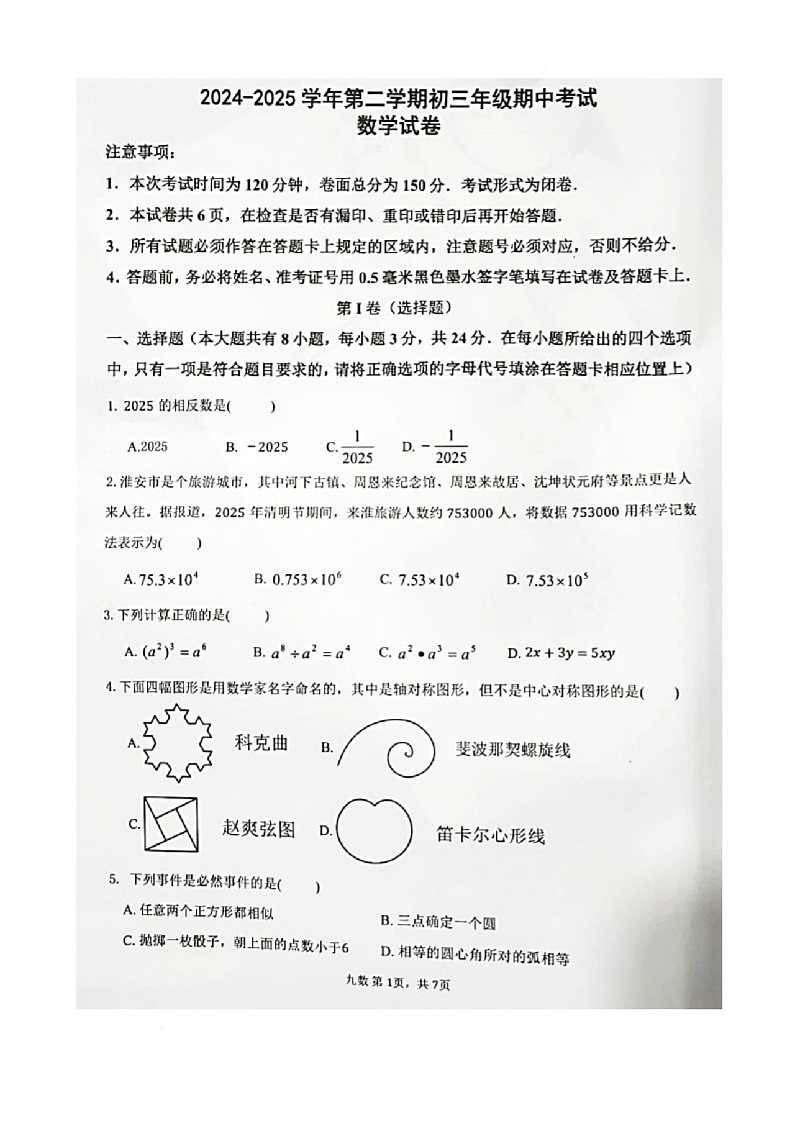 2024-2025 学年第二学期初三年级期中考试
数学试卷
注意事项：
1．本次考试时间为 120 分钟，卷面总分为 150 分．考试形式为闭卷．
2．本试卷共 6 页，在检查是否有漏印、重印或错印后再开始答题．
3．所有试题必须作答在答题卡上规定的区域内，注意题号必须对应，否则不给分．
4．答题前，务必将姓名、准考证号用 0.5 毫米黑色墨水签字笔填写在试卷及答题卡上．
第 I 卷（选择题）
一、选择题（本大题共有 8 小题，每小题 3 分，共 24 分．在每小题所给出的四个选项
中，只有一项是符合题目要求的，请将正确选项的字母代号填涂在答题卡相应位置上）
1. 2025 的相反数是( )
A.2025 B. －2025 C. 1/2025 D. －1/2025
2.淮安市是个旅游城市，其中河下古镇、周恩来纪念馆、周恩来故居、沈坤状元府等景点更是人
来人往。据报道，2025 年清明节期间，来淮旅游人数约 753000 人，将数据 753000 用科学记数
法表示为( )
A. 75.3×10⁴ B. 0.753×10⁶ C. 7.53×10⁴ D. 7.53×10⁵
3.下列计算正确的是( )
A. (a²)³ = a⁶ B. a⁸ ÷ a² = a⁴ C. a² • a³ = a⁵ D. 2x + 3y = 5xy
4.下面四幅图形是用数学家名字命名的，其中是轴对称图形，但不是中心对称图形的是( )
A. 科克曲 B. 斐波那契螺旋线
C. 赵爽弦图 D. 笛卡尔心形线
5. 下列事件是必然事件的是( )
A. 任意两个正方形都相似 B. 三点确定一个圆
C. 抛掷一枚骰子，朝上面的点数小于6 D. 相等的圆心角所对的弧相等
九数 第 1页，共 7页